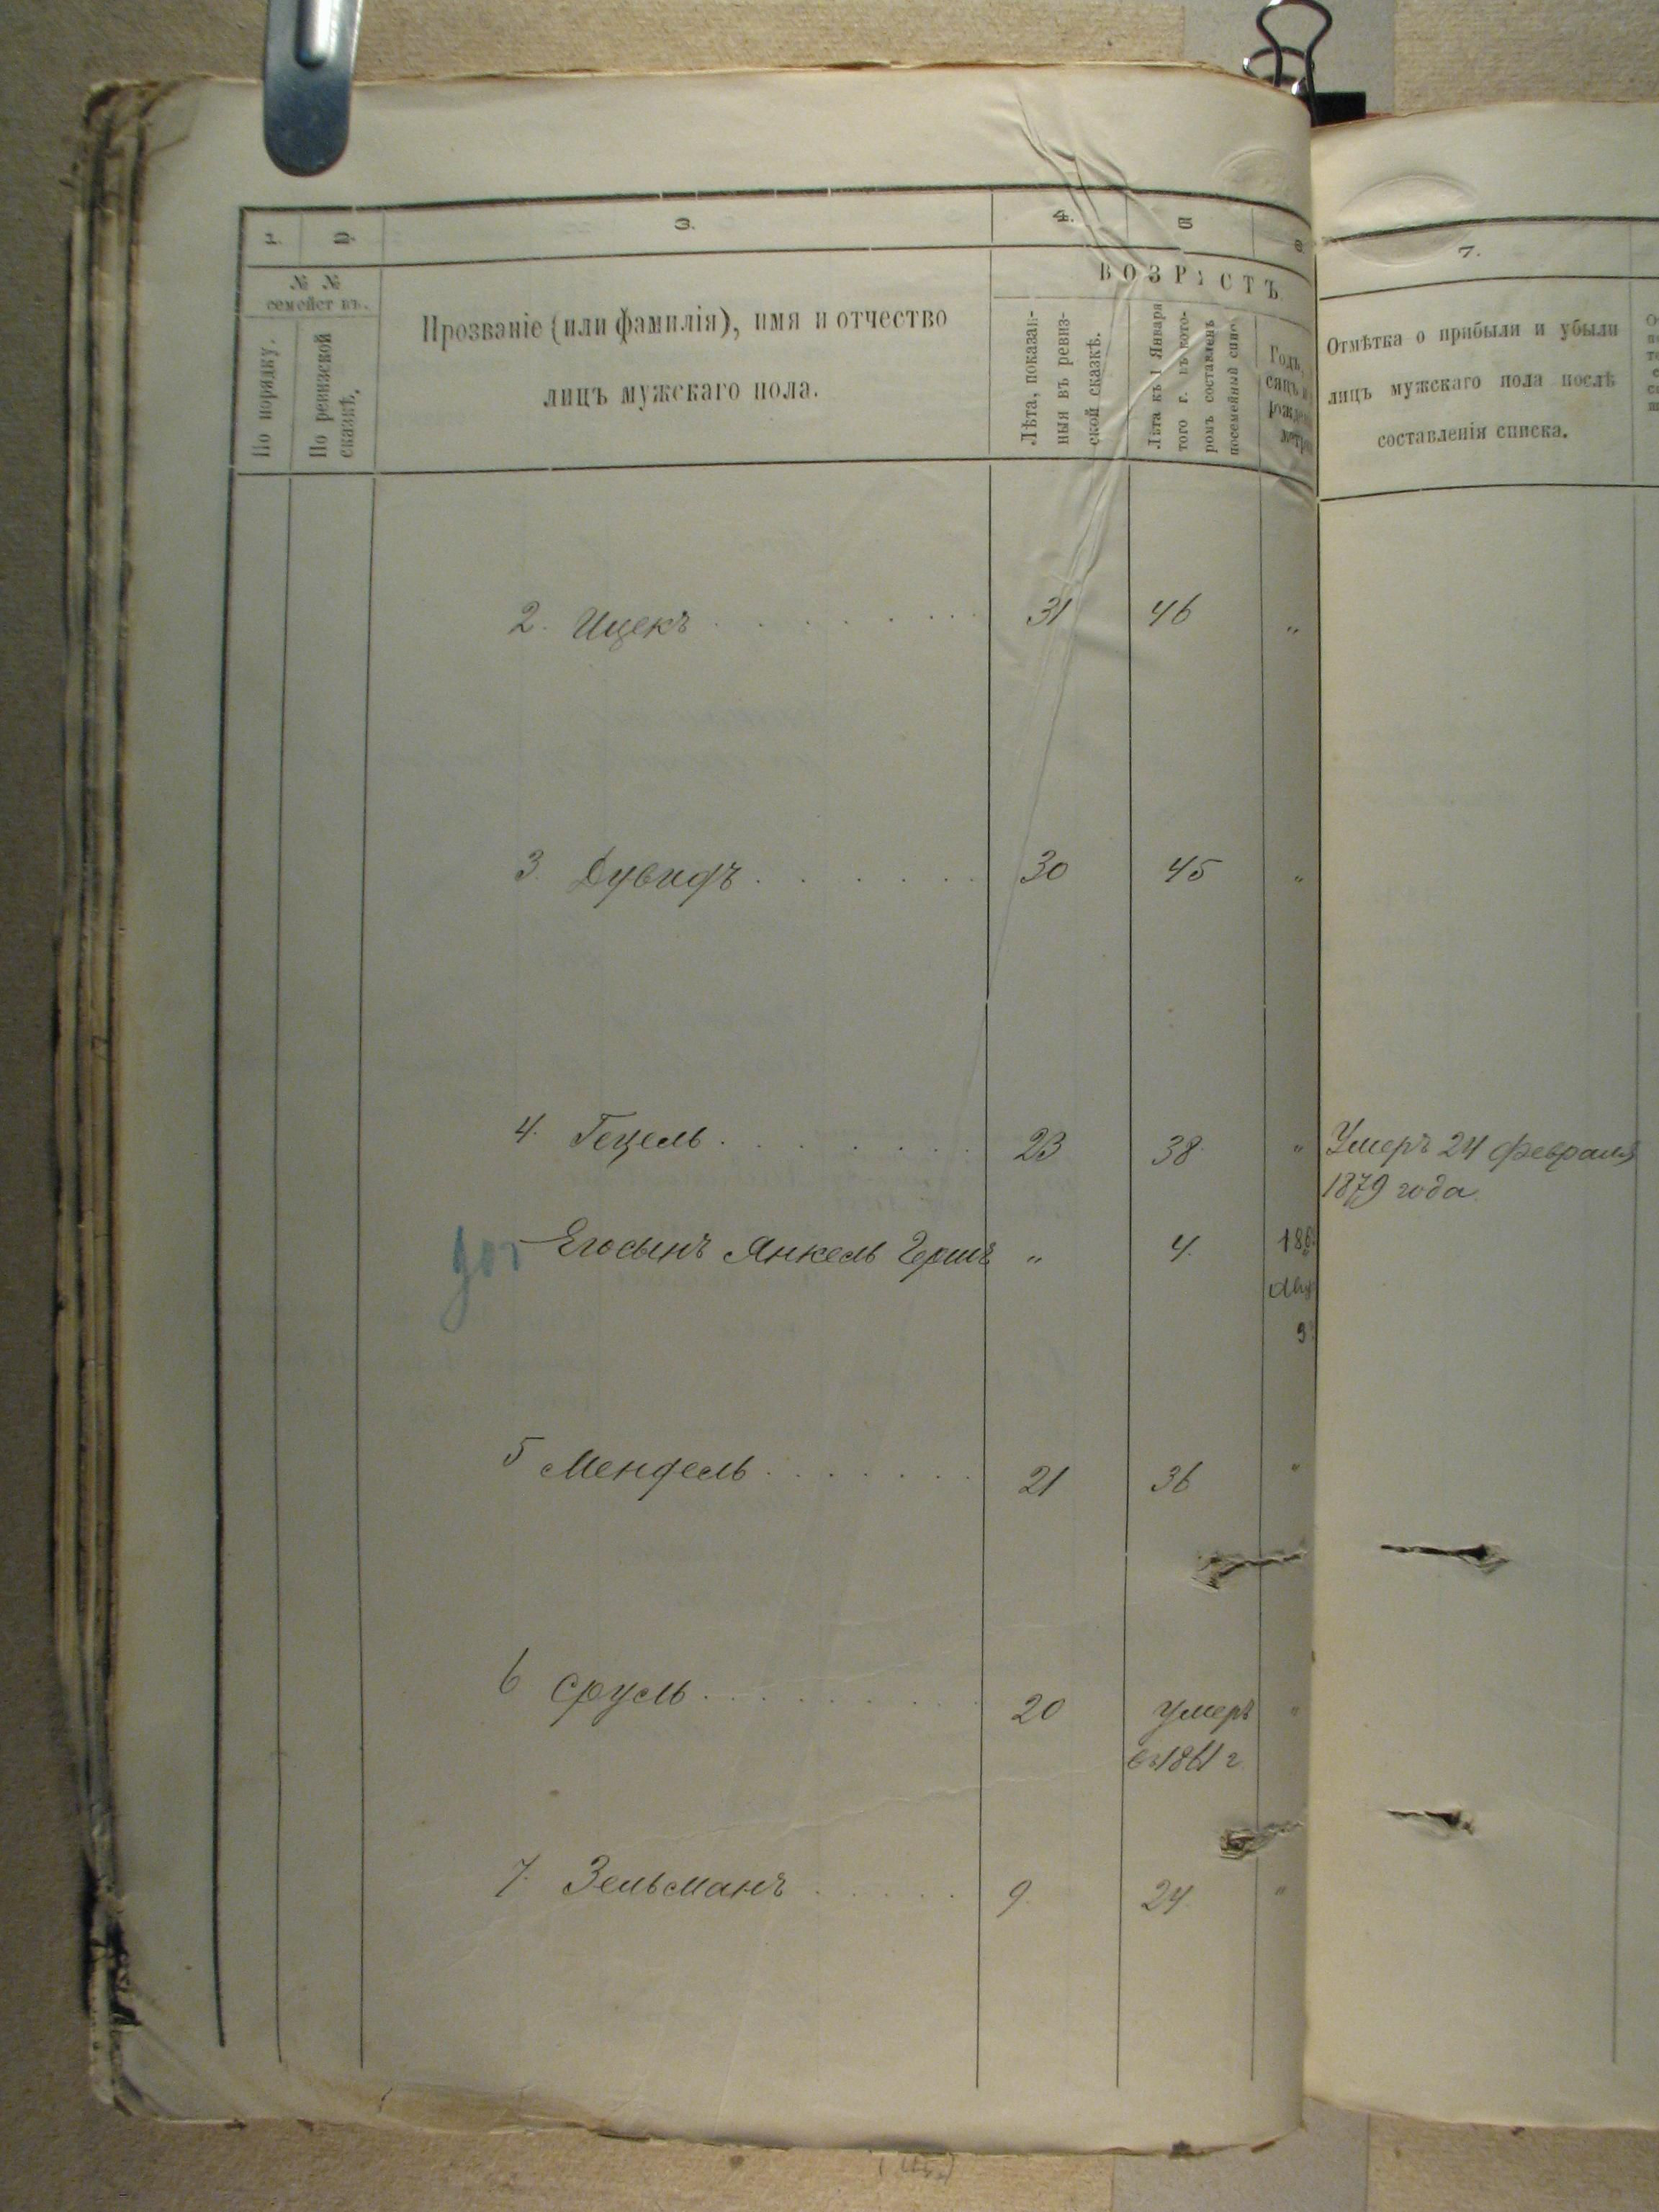 1.
2.
3.
4.
5
6.
7.
№ №
семействъ.
По порядку.
По ревизской
сказкѣ.
Прозваніе (или фамилія), имя и отчество
лицъ мужскаго пола.
ВОЗРАСТЪ.
Лѣта, показан-
ныя въ ревиз-
ской сказкѣ.
Лѣта къ 1 Января
того г. въ кото-
ромъ составленъ
посемейный спис.
Годъ,
Отмѣтка о прибыли и убыли
лицъ мужскаго пола послѣ
составленія списка.
2. Ицекъ . . . . . . . . 31 46 „
3. Дувидъ . . . . . . 30 45 „
4. Гецель . . . . . . . 23 38 „ Умеръ 24 февраля
1879 года.
Его сынъ Янкель Гершъ „ 4.
5 Мендель . . . . . . . 21 36 „
6 Сруль . . . . . . . . . . 20 умеръ „
въ 1861 г.
7. Зельманъ . . . . . 9. 24. „